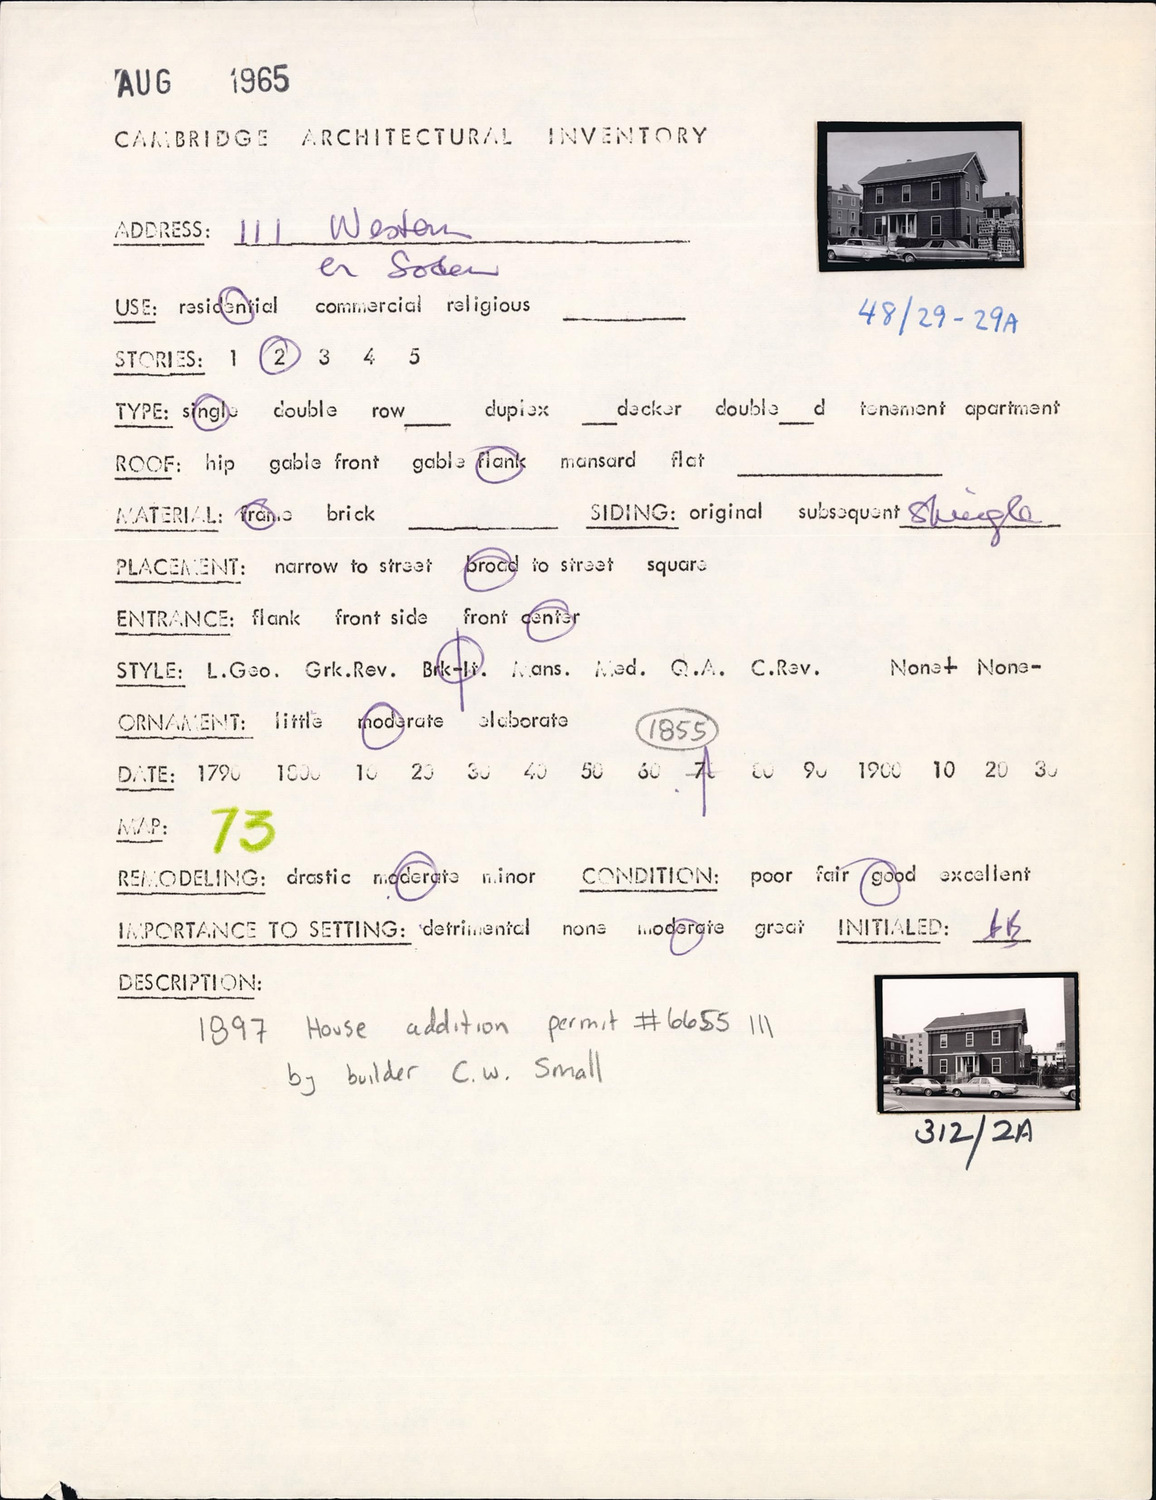 AUG 1965
CAMBRIDGE ARCHITECTURAL INVENTORY
ADDRESS: 111 Western
cr Soden
48/29-29A
USE: residential commercial religious
STORIES: 1 2 3 4 5
TYPE: single double row___ duplex ___decker double___d tenement apartment
ROOF: hip gable front gable flank mansard flat
MATERIAL: frame brick SIDING: original subsequent Shingle
PLACEMENT: narrow to street broad to street square
ENTRANCE: flank front side front center
STYLE: L.Geo. Grk.Rev. Brk-It. Mans. Med. Q.A. C.Rev. None+ None-
ORNAMENT: little moderate elaborate 1855
DATE: 1790 1800 10 20 30 40 50 60 70 80 90 1900 10 20 30
MAP: 73
REMODELING: drastic moderate minor CONDITION: poor fair good excellent
IMPORTANCE TO SETTING: detrimental none moderate great INITIALED:
DESCRIPTION:
1897 House addition permit #6655 111
by builder C.W. Small
312/2A